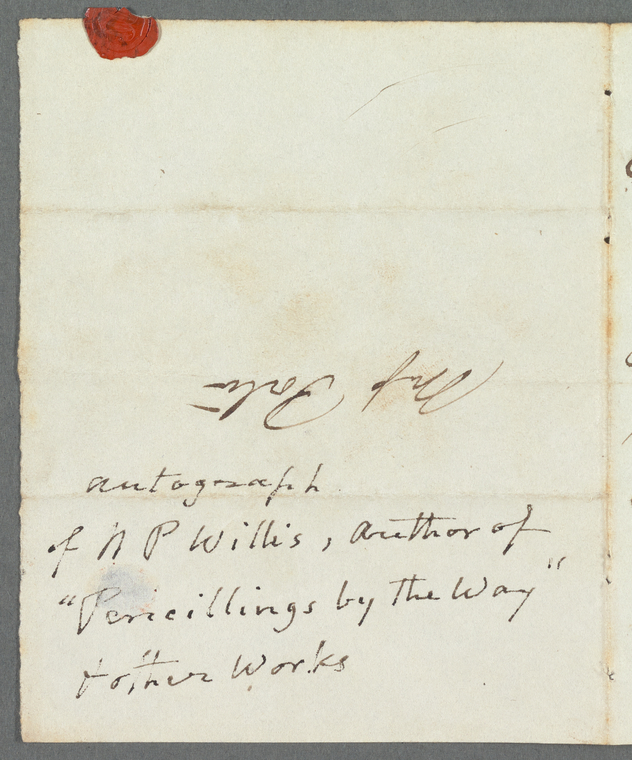 Miss Porter
autograph
of N P Willis, author of
"Pencillings by the Way"
& other Works